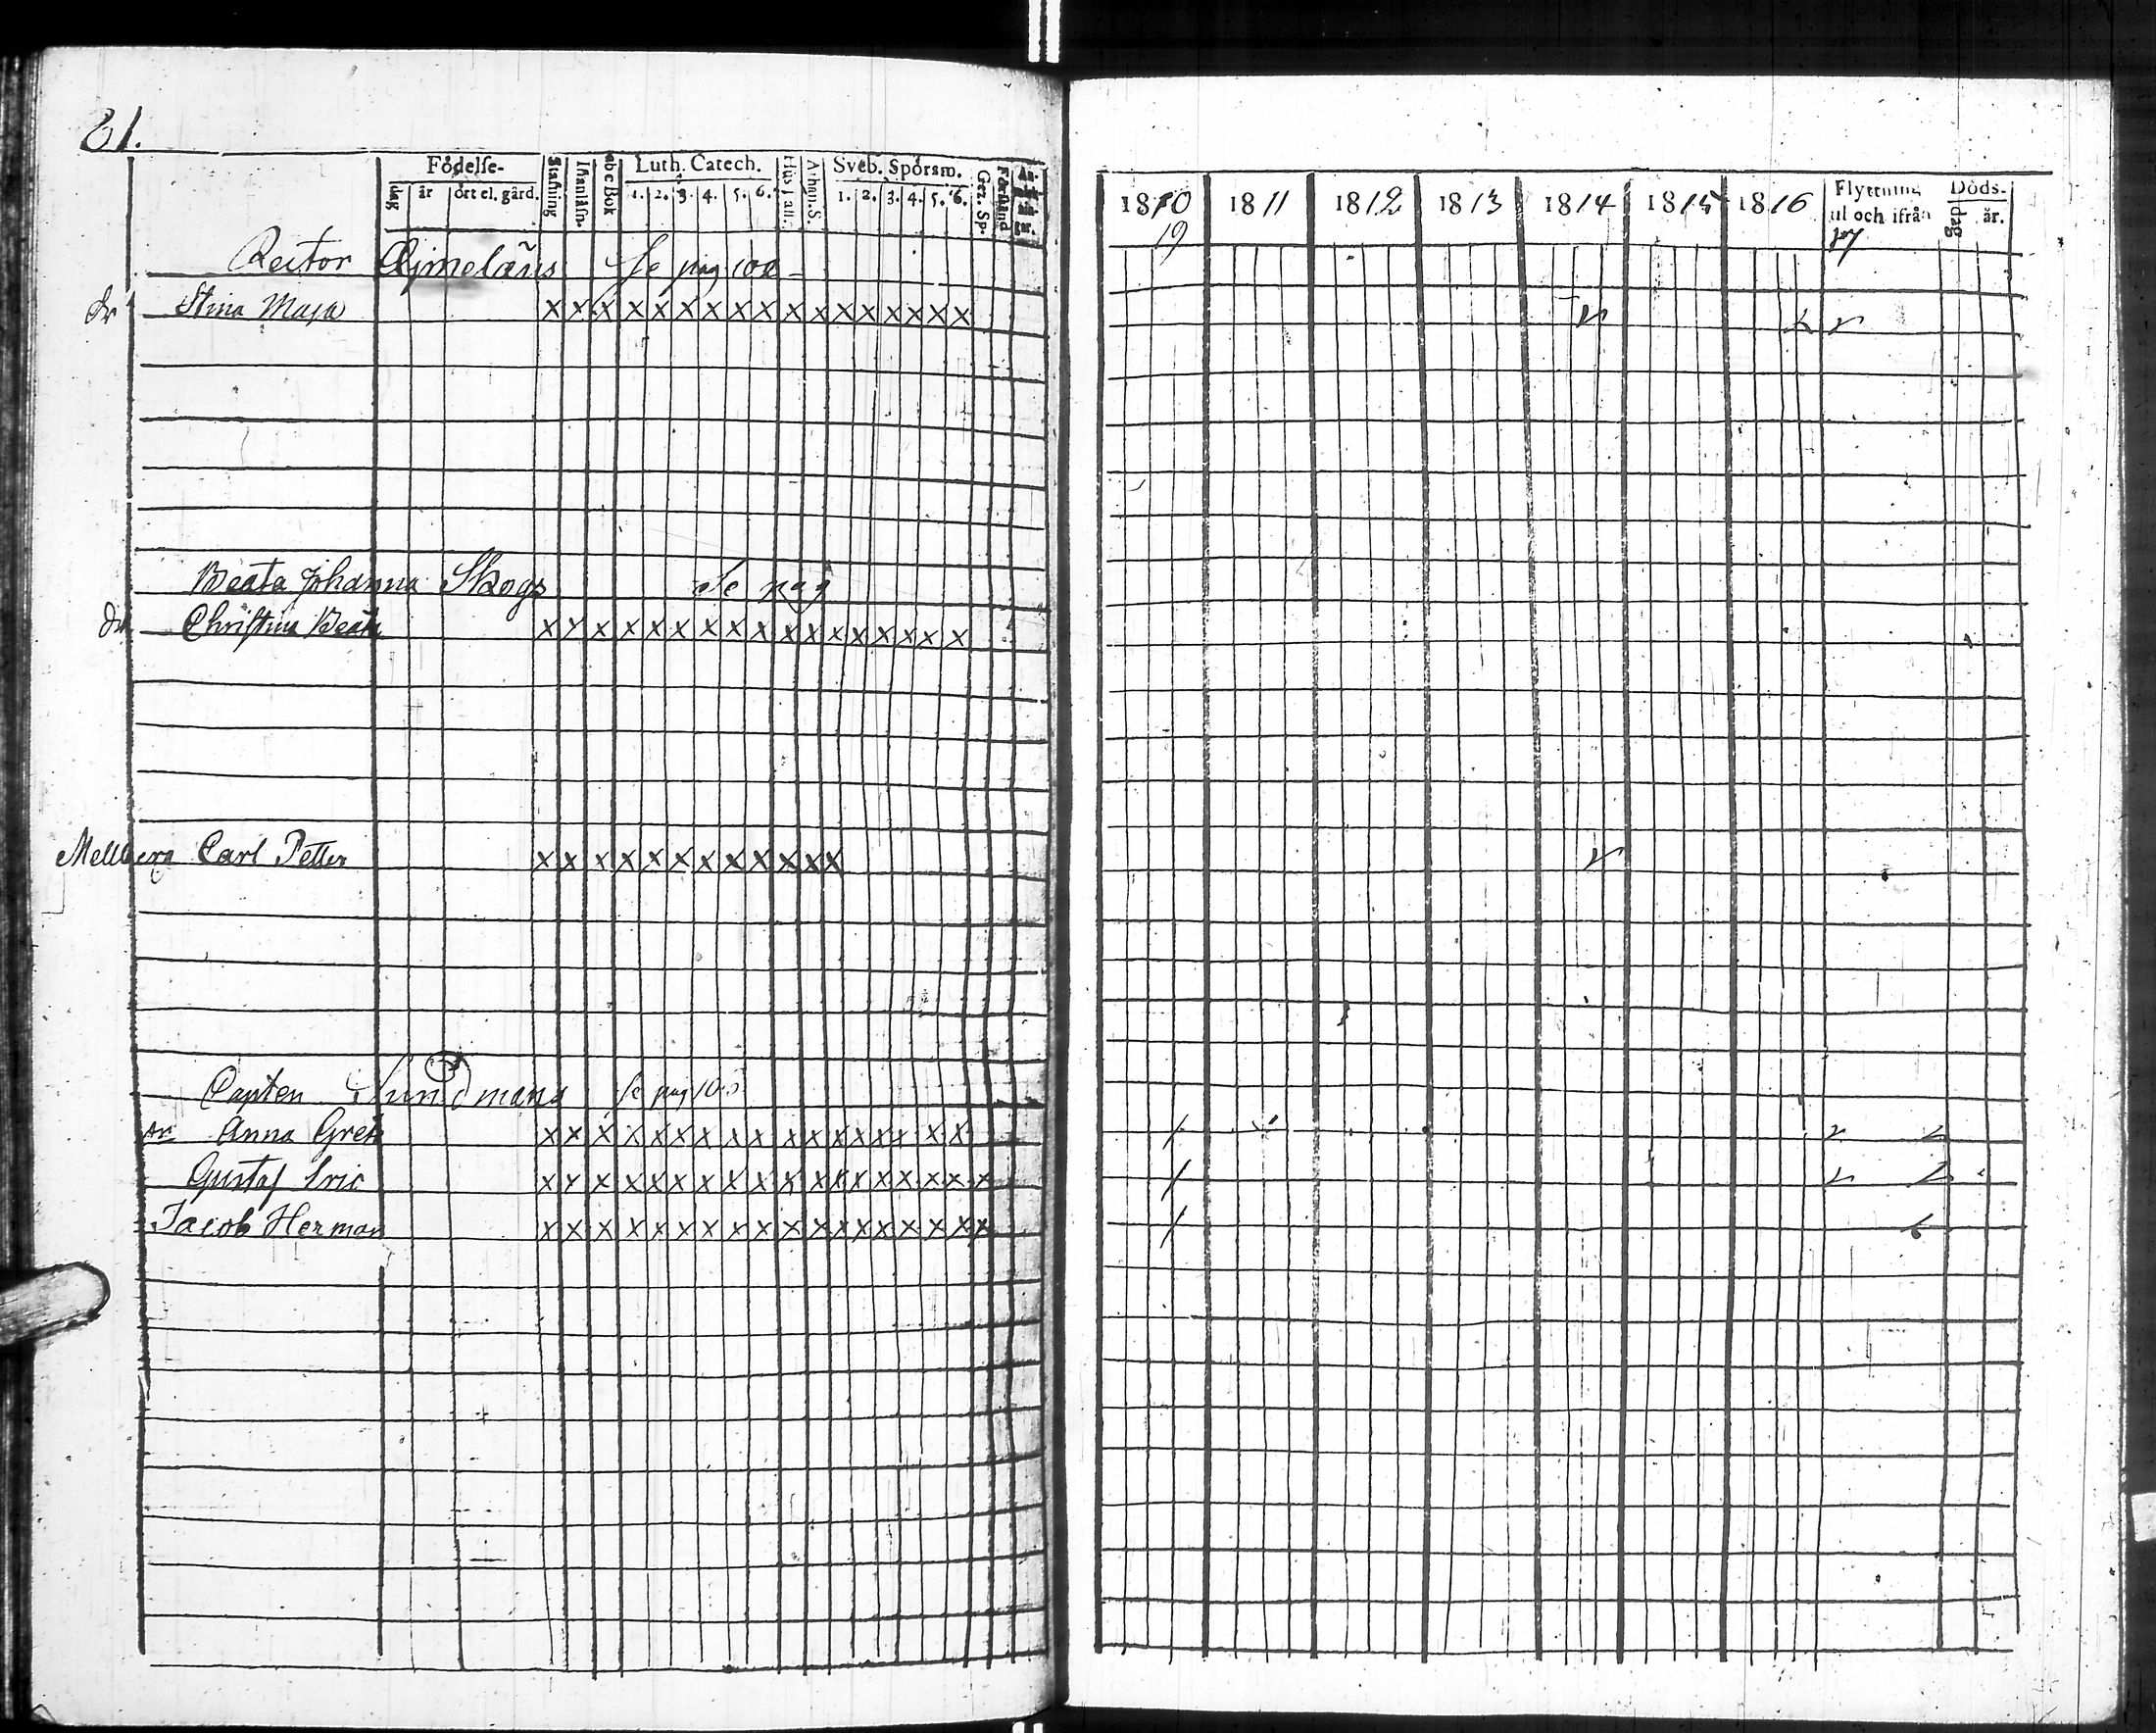 81.
Födelse-
dag år ört el. gård.
Stafning
Abc Bok
Luth. Catech.
1. 2. 3. 4. 5. 6.
Athan. S.
Sveb. Spörsm.
1. 2. 3. 4. 5. 6.
Ger. Sp.
Förstånd
Rector Se pag
Dr Stina Maja x x x x x x x x x x x x x x x x x
Beata Johanna Skogs Se pag
Dr Christina Beata x x x x x x x x x x x x x x x x x
Mellberg Carl Petter x x x x x x x x x x x x
Capten Sundmans Se pag 10
Anna Greta x x x x x x x x x x x x x x x x x
Gustaf Eric x x x x x x x x x x x x x x x x x x
Jacob Herman x x x x x x x x x x x x x x x x x x
1810 1811 1812 1813 1814 1815 1816
19
Flyttning
til och ifrån
17
Döds-
dag år.